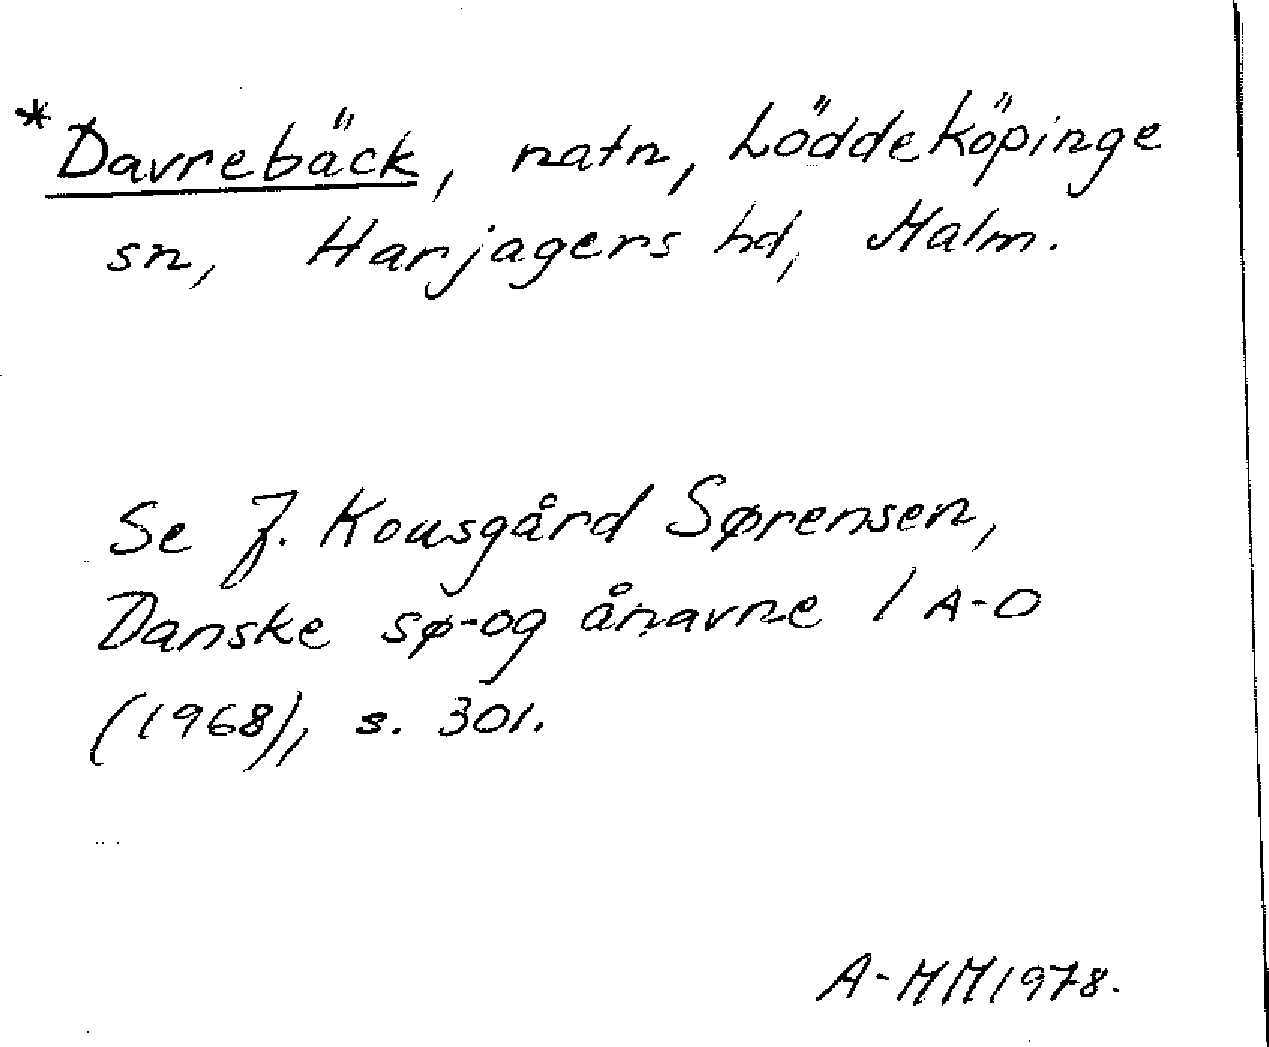 *Davrebäck, natn, Löddeköpinge
sn, Harjagers hd, Malm.
Se J. Kousgård Sørensen,
Danske sø-og ånavne 1 A-D
(1968), s. 301.
A-MM1978.